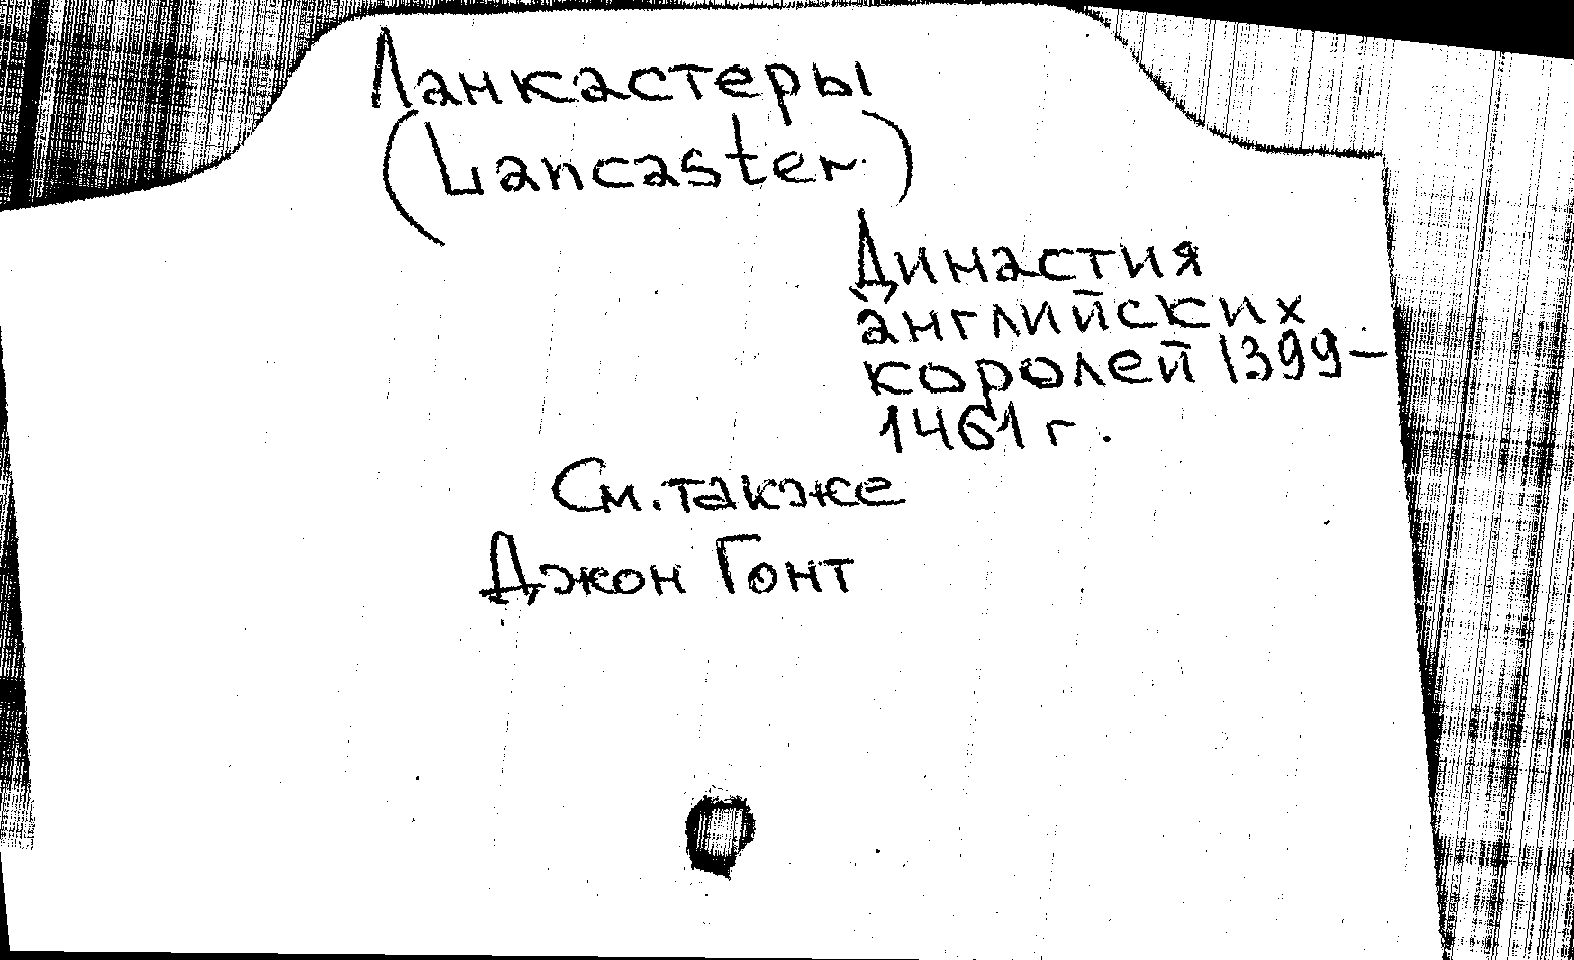 Ланкастеры
(Lancaster)
Династия
английских
королей 1399-
1461 г.
См. также
Джон Гонт